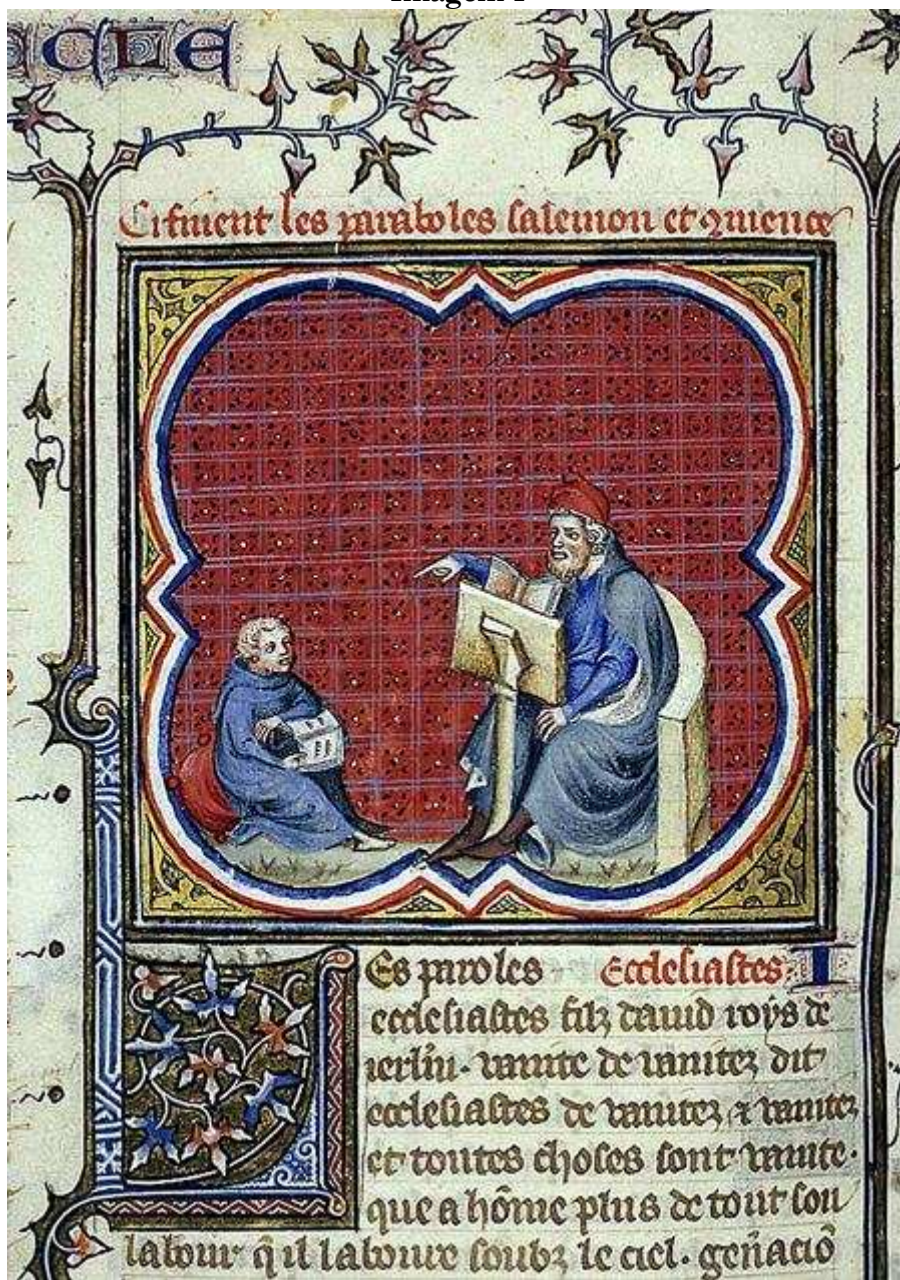 Imagem 1
acle
Cifinent les paraboles salemon et 9mence
Les paroles Ecclesiastes·
ecclesiastes filz dauid roys de
ierlm̄· vanite de vanitez dit
ecclesiastes de vanitez ⁊ vanitez
et toutes choses sont vanite·
que a hōme plus de tout son
labour q̄ il laboure soubz le ciel· gen̄aciō